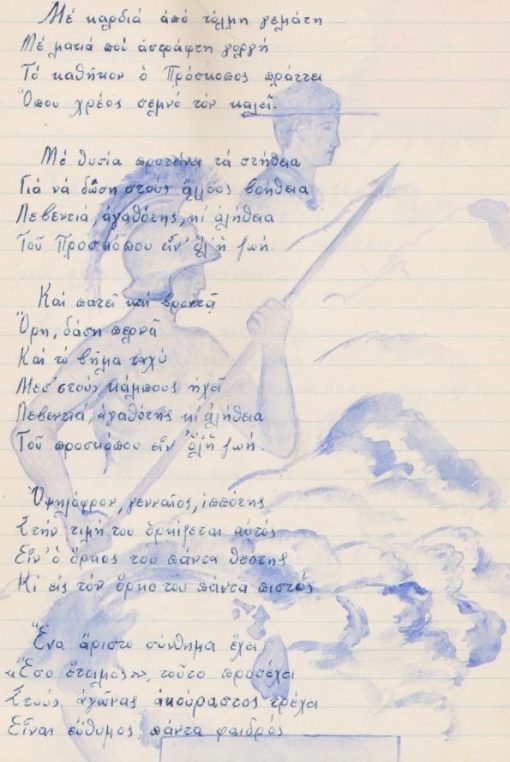 Μέ καρδιά ἀπό τόλμη γεμάτη
Μέ ματιά πού ἀστράφτη γοργή
Τό καθῆκον ὁ Πρόσκοπος πράττει
Ὅπου χρέος σεμνό τόν καλεῖ.
Μέ θυσία προτείνει τά στήθεια
Γιά νά δώση στούς ἄλλους βοήθεια
Λεβεντιά, ἀγαθότης, κι' ἀλήθεια
Τοῦ Προσκόπου εἶν' ὅλη ἡ ζωή
Καί πατεῖ καί βροντᾶ
Ὄρη, δάση περνᾶ
Καί τό βῆμα ταχύ
Μεσ' στούς κάμπους ἠχεῖ
Λεβεντιά, ἀγαθότης κι' ἀλήθεια
Τοῦ προσκόπου εἶν' ὅλη ἡ ζωή.
Ὑψηλόφρον, γενναῖος, ἱππότης
Στήν τιμή του ὁρκίζεται αὐτός
Εἶν' ὁ ὅρκος του πάντα θεότης
Κι' εἰς τόν ὅρκο του πάντα πιστός
Ἕνα ἄριστο σύνθημα ἔχει
«Ἔσο ἕτοιμος», τοῦτο προσέχει
Στούς ἀγῶνας ἀκούραστος τρέχει
Εἶναι εὔθυμος, πάντα φαιδρός